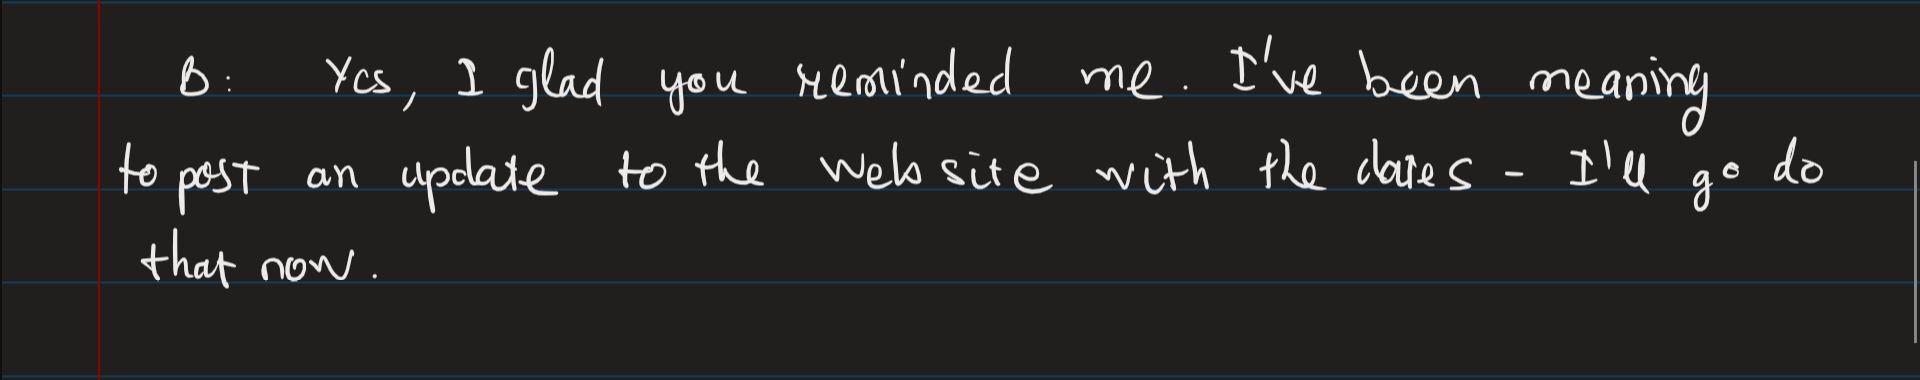 B: Yes, I glad you reminded me. I've been meaning
to post an update to the website with the dates - I'll go do
that now.